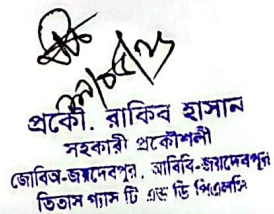 প্রকৌ. রাকিব হাসান
সহকারী প্রকৌশলী
জোবিঅ-জয়দেবপুর, আবিবি-জয়দেবপুর
তিতাস গ্যাস টি এন্ড ডি পিএলসি